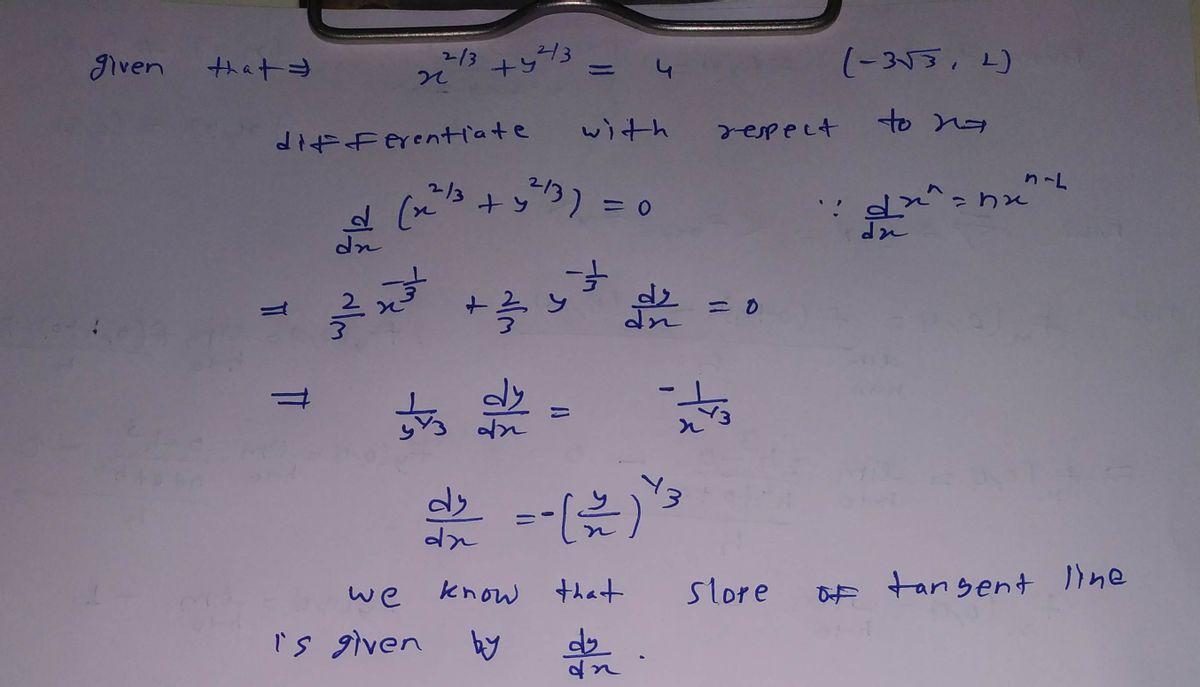 given that ⇒ x^{2/3} + y^{2/3} = 4 (-3√3, 1)
differentiate with respect to x ⇒
d/dx (x^{2/3} + y^{2/3}) = 0 ∵ d/dx x^n = nx^{n-1}
⇒ 2/3 x^{-1/3} + 2/3 y^{-1/3} dy/dx = 0
⇒ 1/y^{1/3} dy/dx = -1/x^{1/3}
dy/dx = -(y/x)^{1/3}
we know that slope of tangent line
is given by dy/dx .